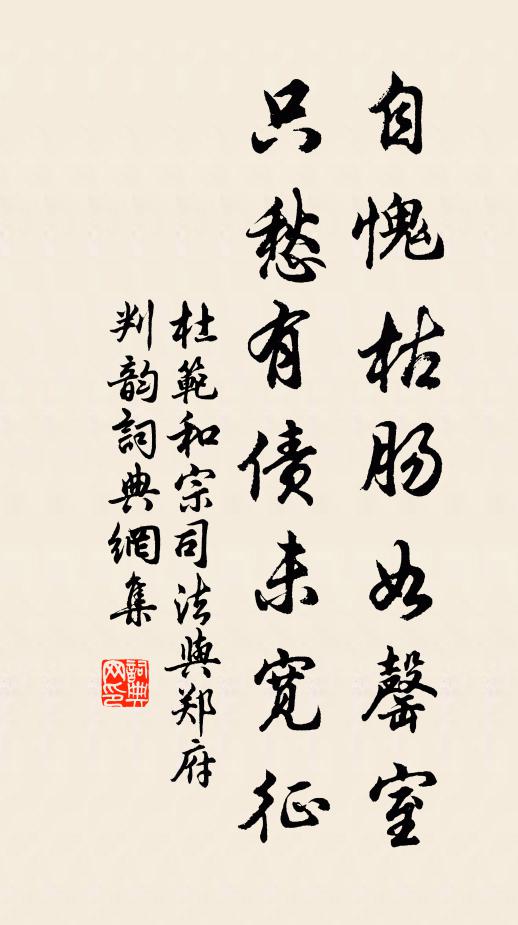 自愧枯肠如罄室
只愁有债未宽征
杜範和宗司法與郑府
判韵詞典網集
詞典网印